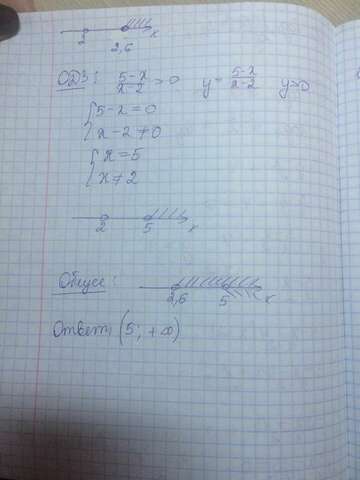 2 2,6 x
ОДЗ: (5-x)/(x-2) > 0 y = (5-x)/(x-2) y>0
{5-x=0
{x-2≠0
{x=5
{x≠2
2 5 x
Общее: 2,6 5 x
Ответ: (5; +∞)